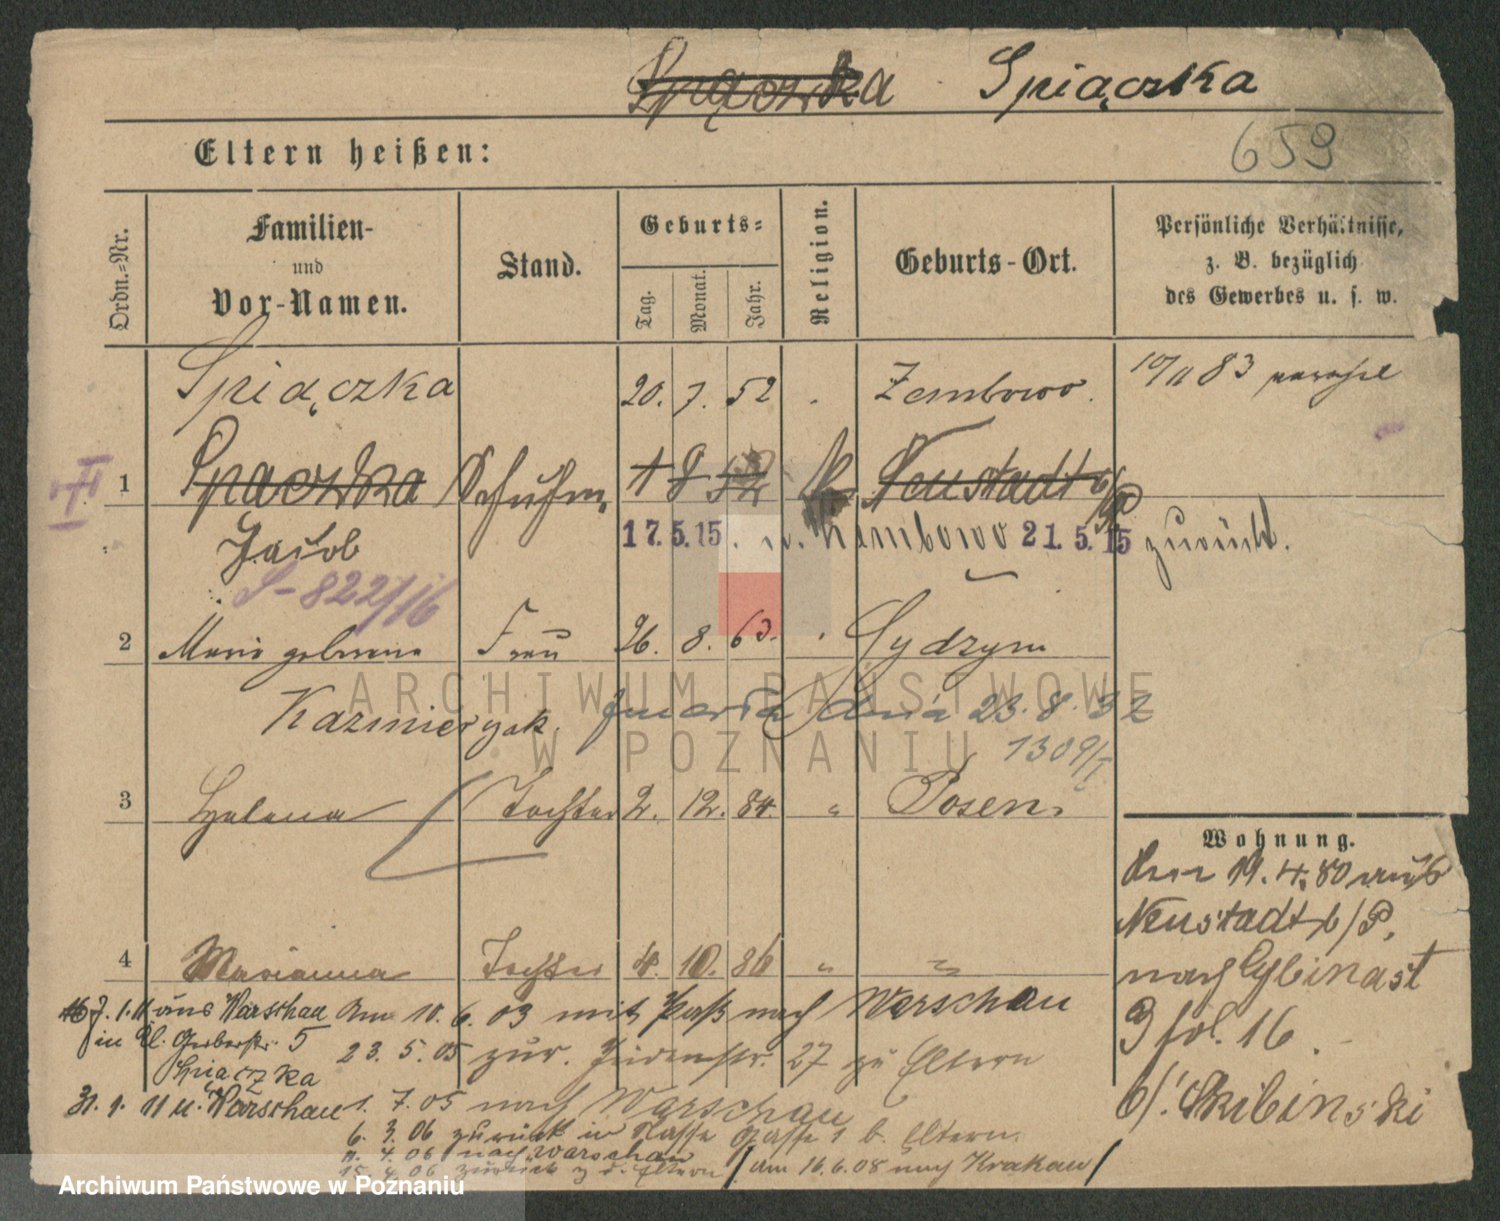 Spiączka
659
Eltern heißen:
Ordn.=Nr.
Familien-
und
Vor-Namen.
Stand.
Geburts=
Tag.
Monat.
Jahr.
Religion.
Geburts-Ort.
Persönliche Verhältnisse,
z. B. bezüglich
des Gewerbes u. s. w.
Spiączka 20. 7. 52 Zembowo. 83
1 Spączka Schuhm. Neustadt b/
Jacob 17.5.15. n. Zembowo 21.5.15 zurück.
S-822/16
2 Maria geborene Frau 26. 8. 63.
Kazmierczak. zmarła dnia 23.8.32
1309/I
3 Helena Tochter 2. 12. 84. " Posen.
Wohnung.
Den 19.4.80 aus
Neustadt b/P.
nach Cybinast
3 fol. 16.
b/. Skibinski
4 Marianna Tochter 4. 10. 86 " "
7.1.11 aus Warschau Am 10.6.03 mit Paß nach Warschau
in Kl. Gerberstr. 5
23.5.05 zur. 27 zu Eltern
Spiączka
31.1.11 n. Warschau 1.7.05 nach Warschau
6.3.06 zurück in 1 b. Eltern.
4.06 nach Warschau
15.4.06 zurück z. d. Eltern / am 16.6.08 nach Krakau /
ARCHIWUM PAŃSTWOWE
W POZNANIU
Archiwum Państwowe w Poznaniu